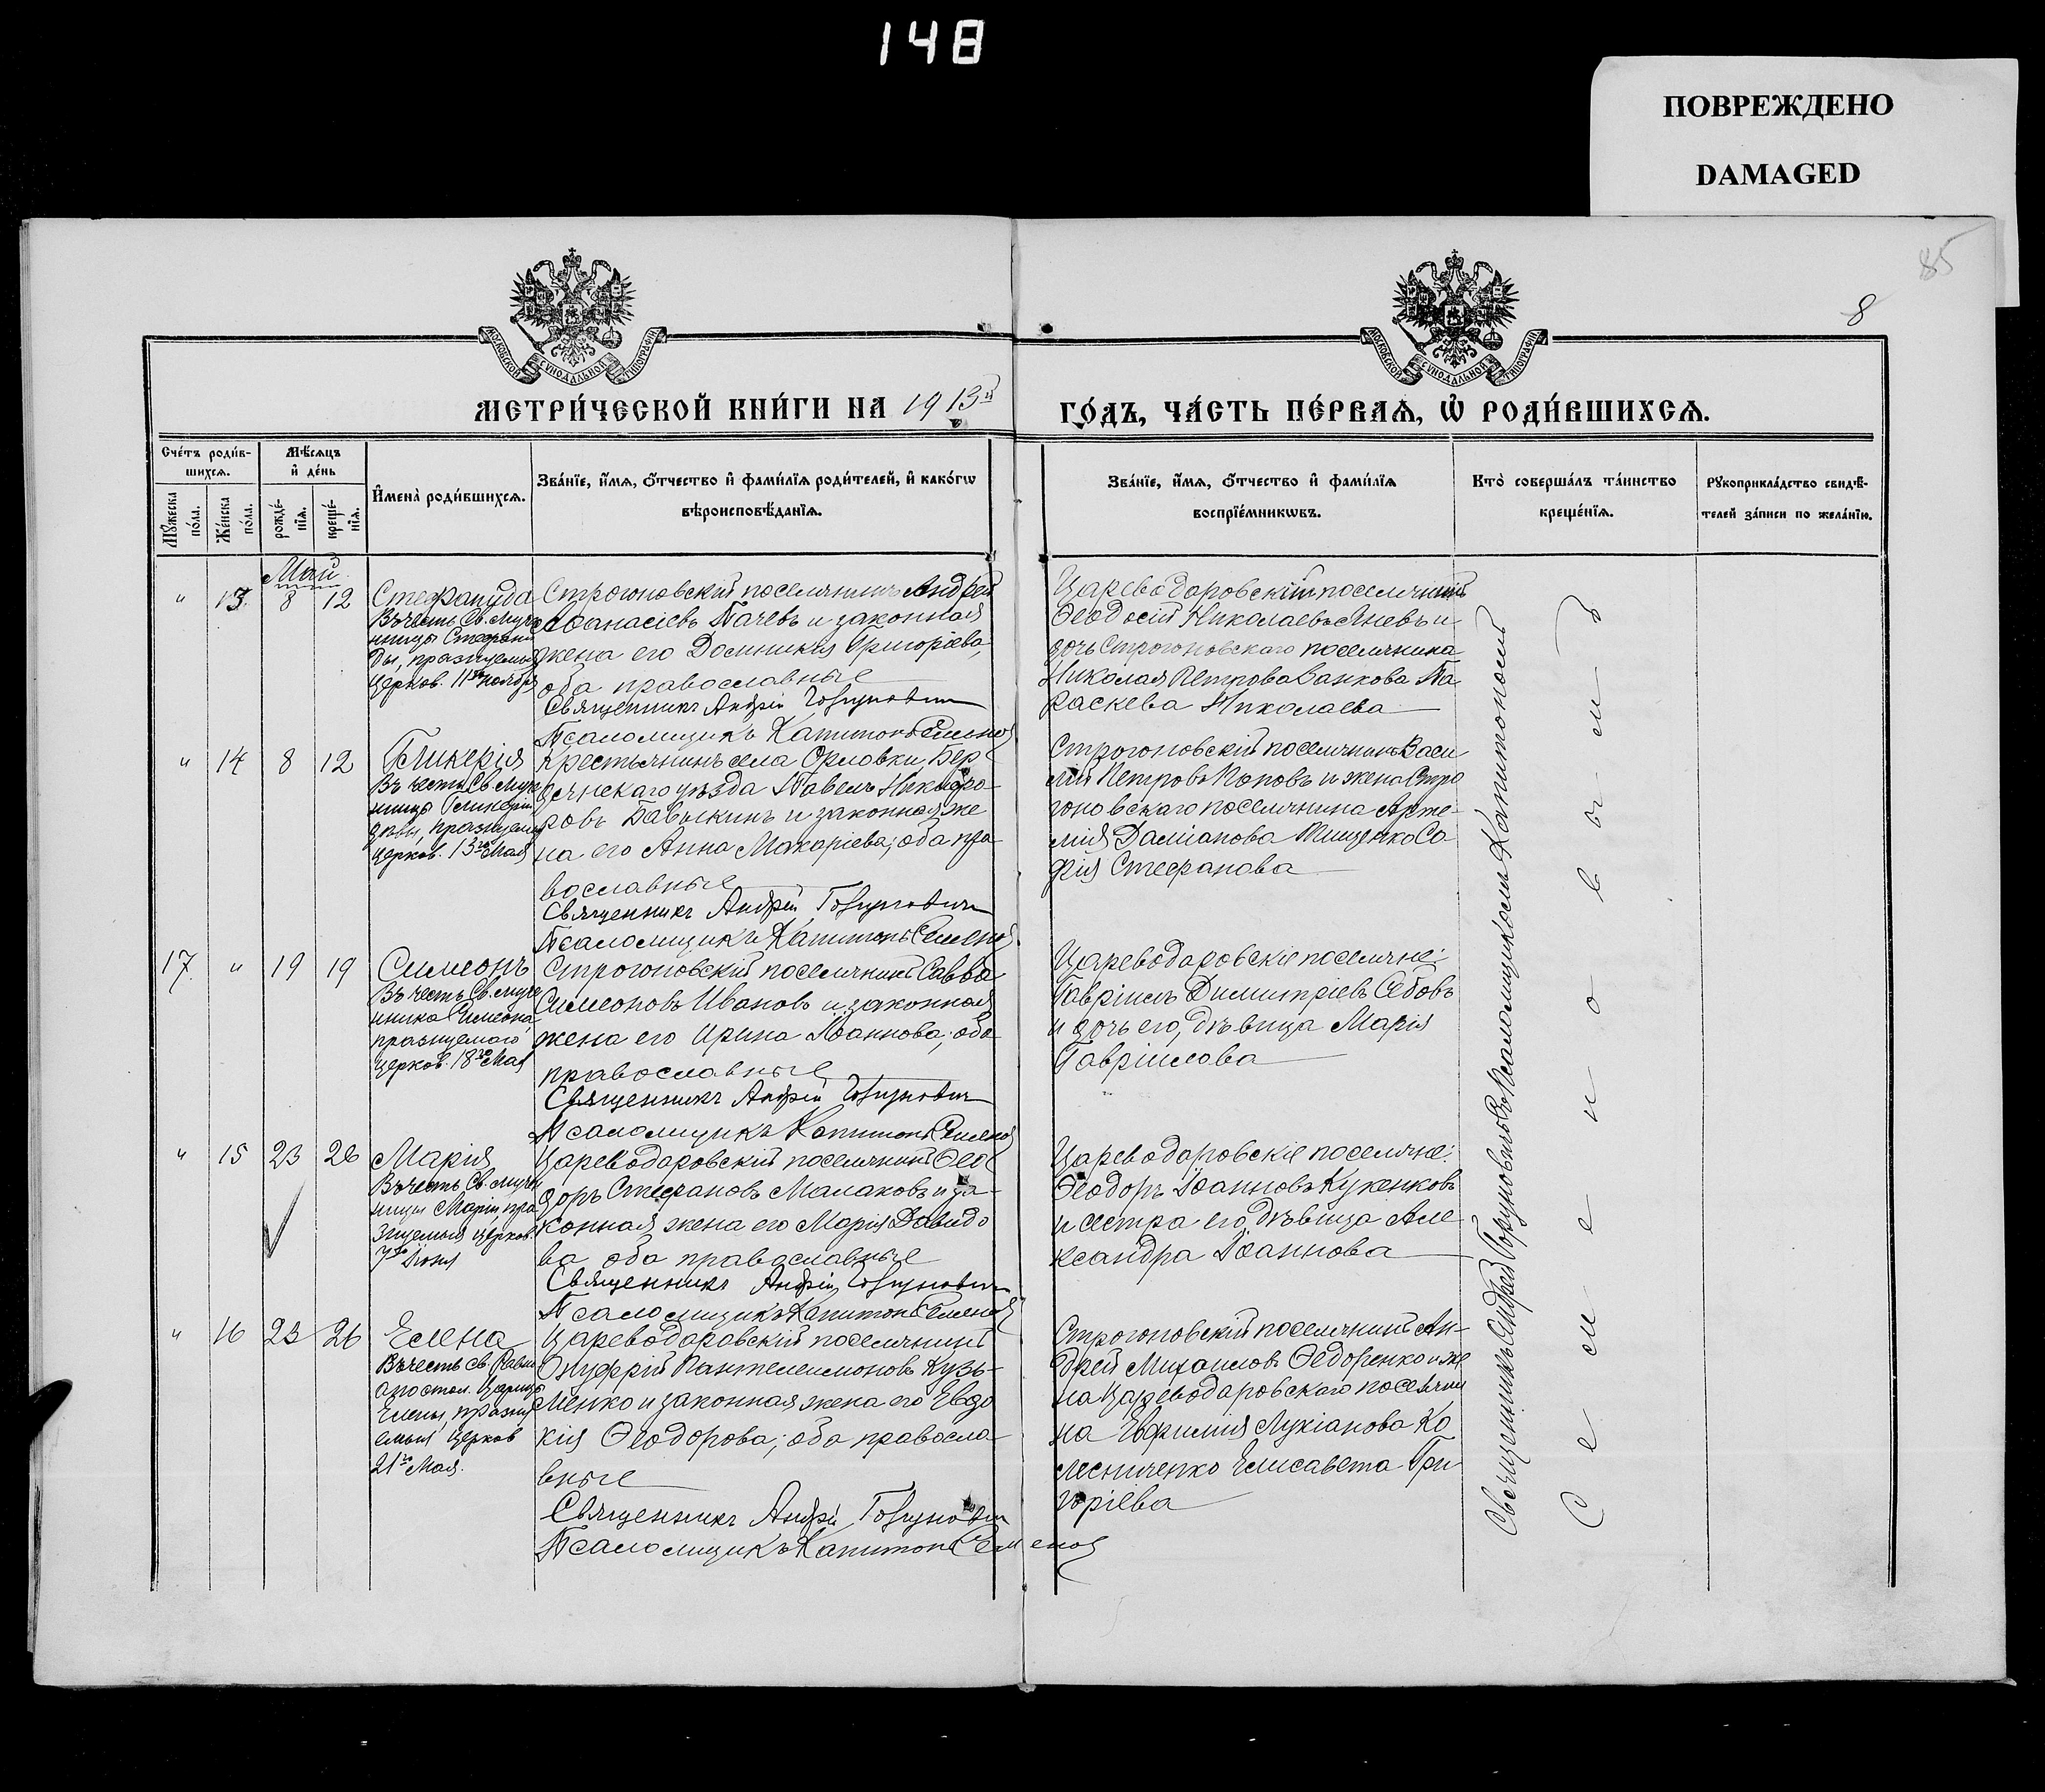 148
ПОВРЕЖДЕНО
DAMAGED
85
8
МОСКОВСКОЙ СѴНОДАЛЬНОЙ ТИПОГРАФІИ
МОСКОВСКОЙ СѴНОДАЛЬНОЙ ТИПОГРАФІИ
МЕТРИ́ЧЕСКОЙ КНИ́ГИ НА 1913й
ГО́ДЪ, ЧА́СТЬ ПЕ́РВАѦ, Ѡ҆ РОДИ́ВШИХСѦ.
Сче́тъ роди́в-
шихсѧ.
Мѣ́сѧцъ
и҆ де́нь
Мꙋ́жеска
по́ла.
Же́нска
по́ла.
рожде́-
нїѧ.
креще́-
нїѧ.
И҆мена̀ роди́вшихсѧ.
Зва́нїе, и҆́мѧ, ѻ҆́тчество и҆ фами́лїѧ роди́телей, и҆ како́гѡ
вѣроисповѣ́данїѧ.
Зва́нїе, и҆́мѧ, ѻ҆́тчество и҆ фами́лїѧ
воспрїе́мникѡвъ.
Кто̀ соверша́лъ та́инство
креще́нїѧ.
Рꙋкоприкла́дство свидѣ́-
телей за́писи по жела́нїю.
Май
" 13. 8 12
Стефанида
Въ честь Св. Муче
ницы Стефани
ды, празнуемыя
Церков. 11го ноября
Строгоновскій поселянинъ Андрей
Аѳанасіевъ Тачевъ и законная
жена его Домникія Григоріева,
оба православные
Священникъ Андрей
Псаломщикъ Капитонъ Семенов
Цареводаровскій поселянинъ
Ѳеодосій Николаевъ Яневъ и
дочь Строгоновскаго поселянина
Николая Петрова Ванкова Па
раскева Николаева
" 14 8 12
Гликерія
Въ честь Св. Муче
ницы Гликеріи
дѣвы, празнуемыя
Церков. 13го Мая
Крестьянинъ села Орловки, Бер
дянскаго уѣзда Павелъ Никифо-
ровъ Бабыкинъ и законная же
на его Анна Макаріева; оба пра
вославные
Священникъ Андрей
Псаломщикъ Капитонъ Семенов
Строгоновскій поселянинъ Васи
лій Петровъ Поповъ и жена Стро
гоновскаго поселянина Арте-
мія Даміанова Тищенко Со
фія Стефанова
17. " 19 19
Симеонъ
Въ честь Св. муче
ника Симеона
празнуемаго
Церков. 18го Мая
Строгоновскій поселянинъ Савва
Симеоновъ Ивановъ и законная
жена его Ирина Іоаннова; оба
православные
Священникъ Андрей
Псаломщикъ Капитонъ Семенов
Цареводаровскіе поселяне:
Гавріилъ Димитріевъ Сѣбовъ
и дочь его, дѣвица Марія
Гавріилова
" 15 23 26
Марія
Въ честь Св. мучен
ницы Маріи пра
знуемыя церков.
7го Іюня
Цареводаровскій поселянинъ Ѳео
доръ Стефановъ Малаковъ и за-
конная жена его Марія Давидо
ва оба православные
Священникъ Андрей
Псаломщикъ Капитонъ Семенов
Цареводаровскіе поселяне:
Ѳеодоръ Іоанновъ Куженковъ
и сестра его, дѣвица Але
ксандра Іоаннова
" 16 23 26
Елена
Въ честь св. Равно
апостол. Царицы
Елены, празну
емыя Церков
21го Мая.
Цареводаровскій поселянинъ
Онуфрій Пантелеимоновъ Кузь-
менко и законная жена его Евдо
кія Ѳеодорова; оба правосла
вные
Священникъ Андрей
Псаломщикъ Капитонъ Семенов
Строгоновскій поселянинъ Ан-
дрей Михаиловъ Ѳедоренко и же
на Цареводаровскаго поселяни
на Евфимія Лукіанова Ко
лесниченко Елисавета Гри
горіева
Священникъ Андрей съ Псаломщикомъ Капитономъ
Семеновымъ